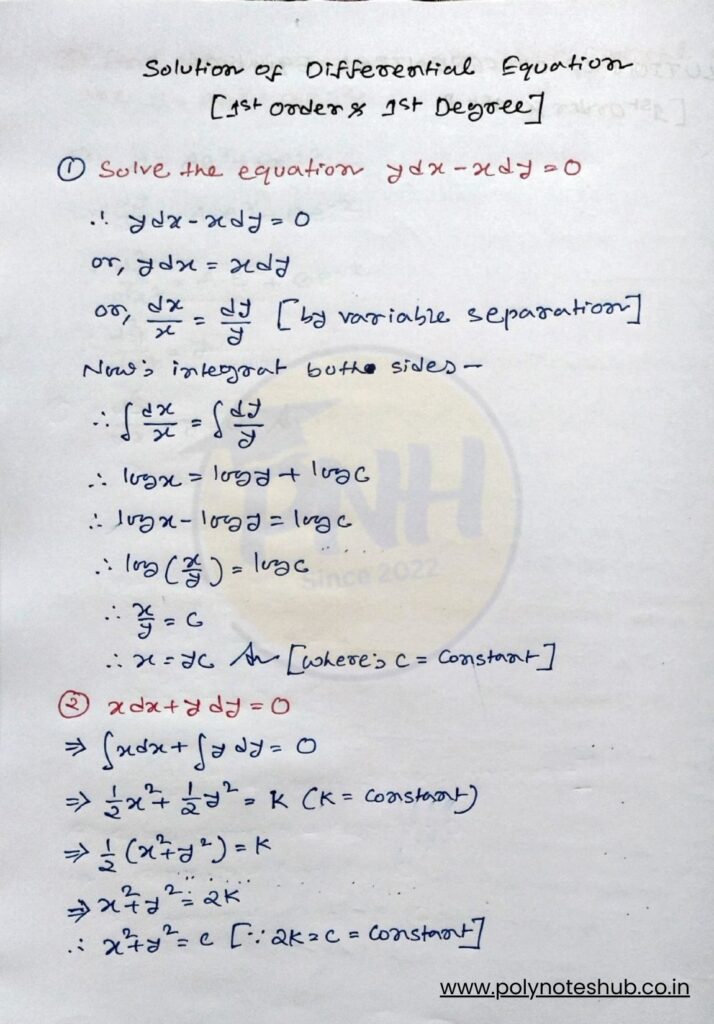 Solution of Differential Equation
[1st order & 1st Degree]
① Solve the equation ydx - xdy = 0
∴ ydx - xdy = 0
or, ydx = xdy
or, dx/x = dy/y [by variable separation]
Now; integrat both sides -
∴ ∫dx/x = ∫dy/y
∴ logx = logy + logC
∴ logx - logy = logC
∴ log(x/y) = logC
∴ x/y = C
∴ x = yC An [where; C = Constant]
② xdx + ydy = 0
⇒ ∫xdx + ∫y dy = 0
⇒ 1/2x² + 1/2y² = K (K = Constant)
⇒ 1/2(x²+y²) = K
⇒ x²+y² = 2K
∴ x²+y² = C [∵ 2K = C = Constant]
PNH
Since 2022
www.polynoteshub.co.in